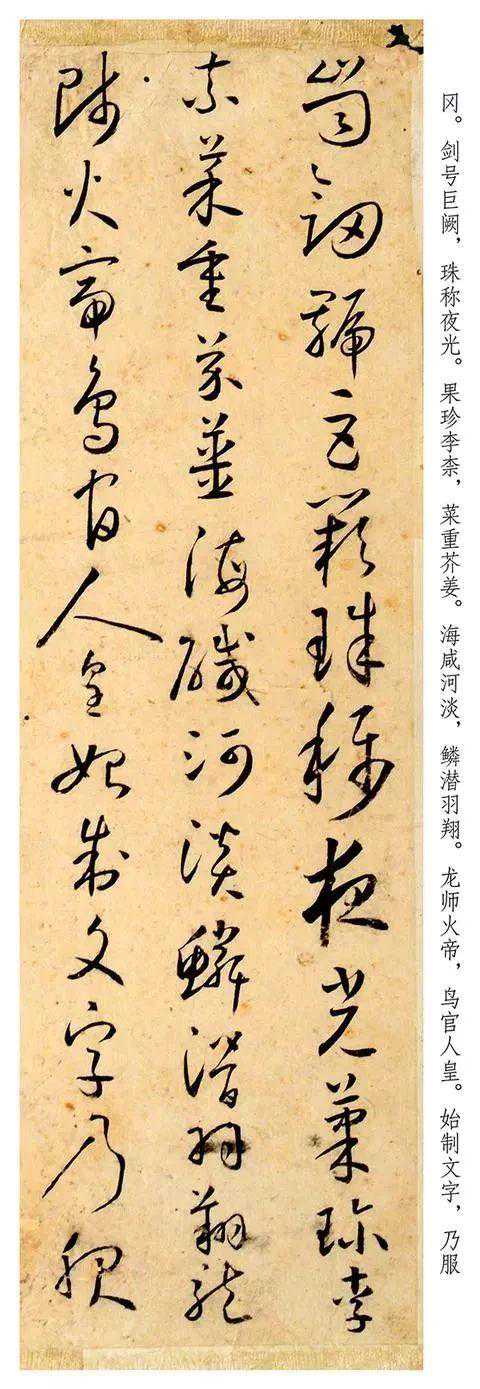 冈。剑号巨阙，珠称夜光。果珍李柰，菜重芥姜。海咸河淡，鳞潜羽翔。龙师火帝，鸟官人皇。始制文字，乃服
崗劒號巨闕珠稱夜光菓珎李
柰菜重芥薑海醎河淡鱗潛羽翔龍
師火帝鳥官人皇始制文字乃服